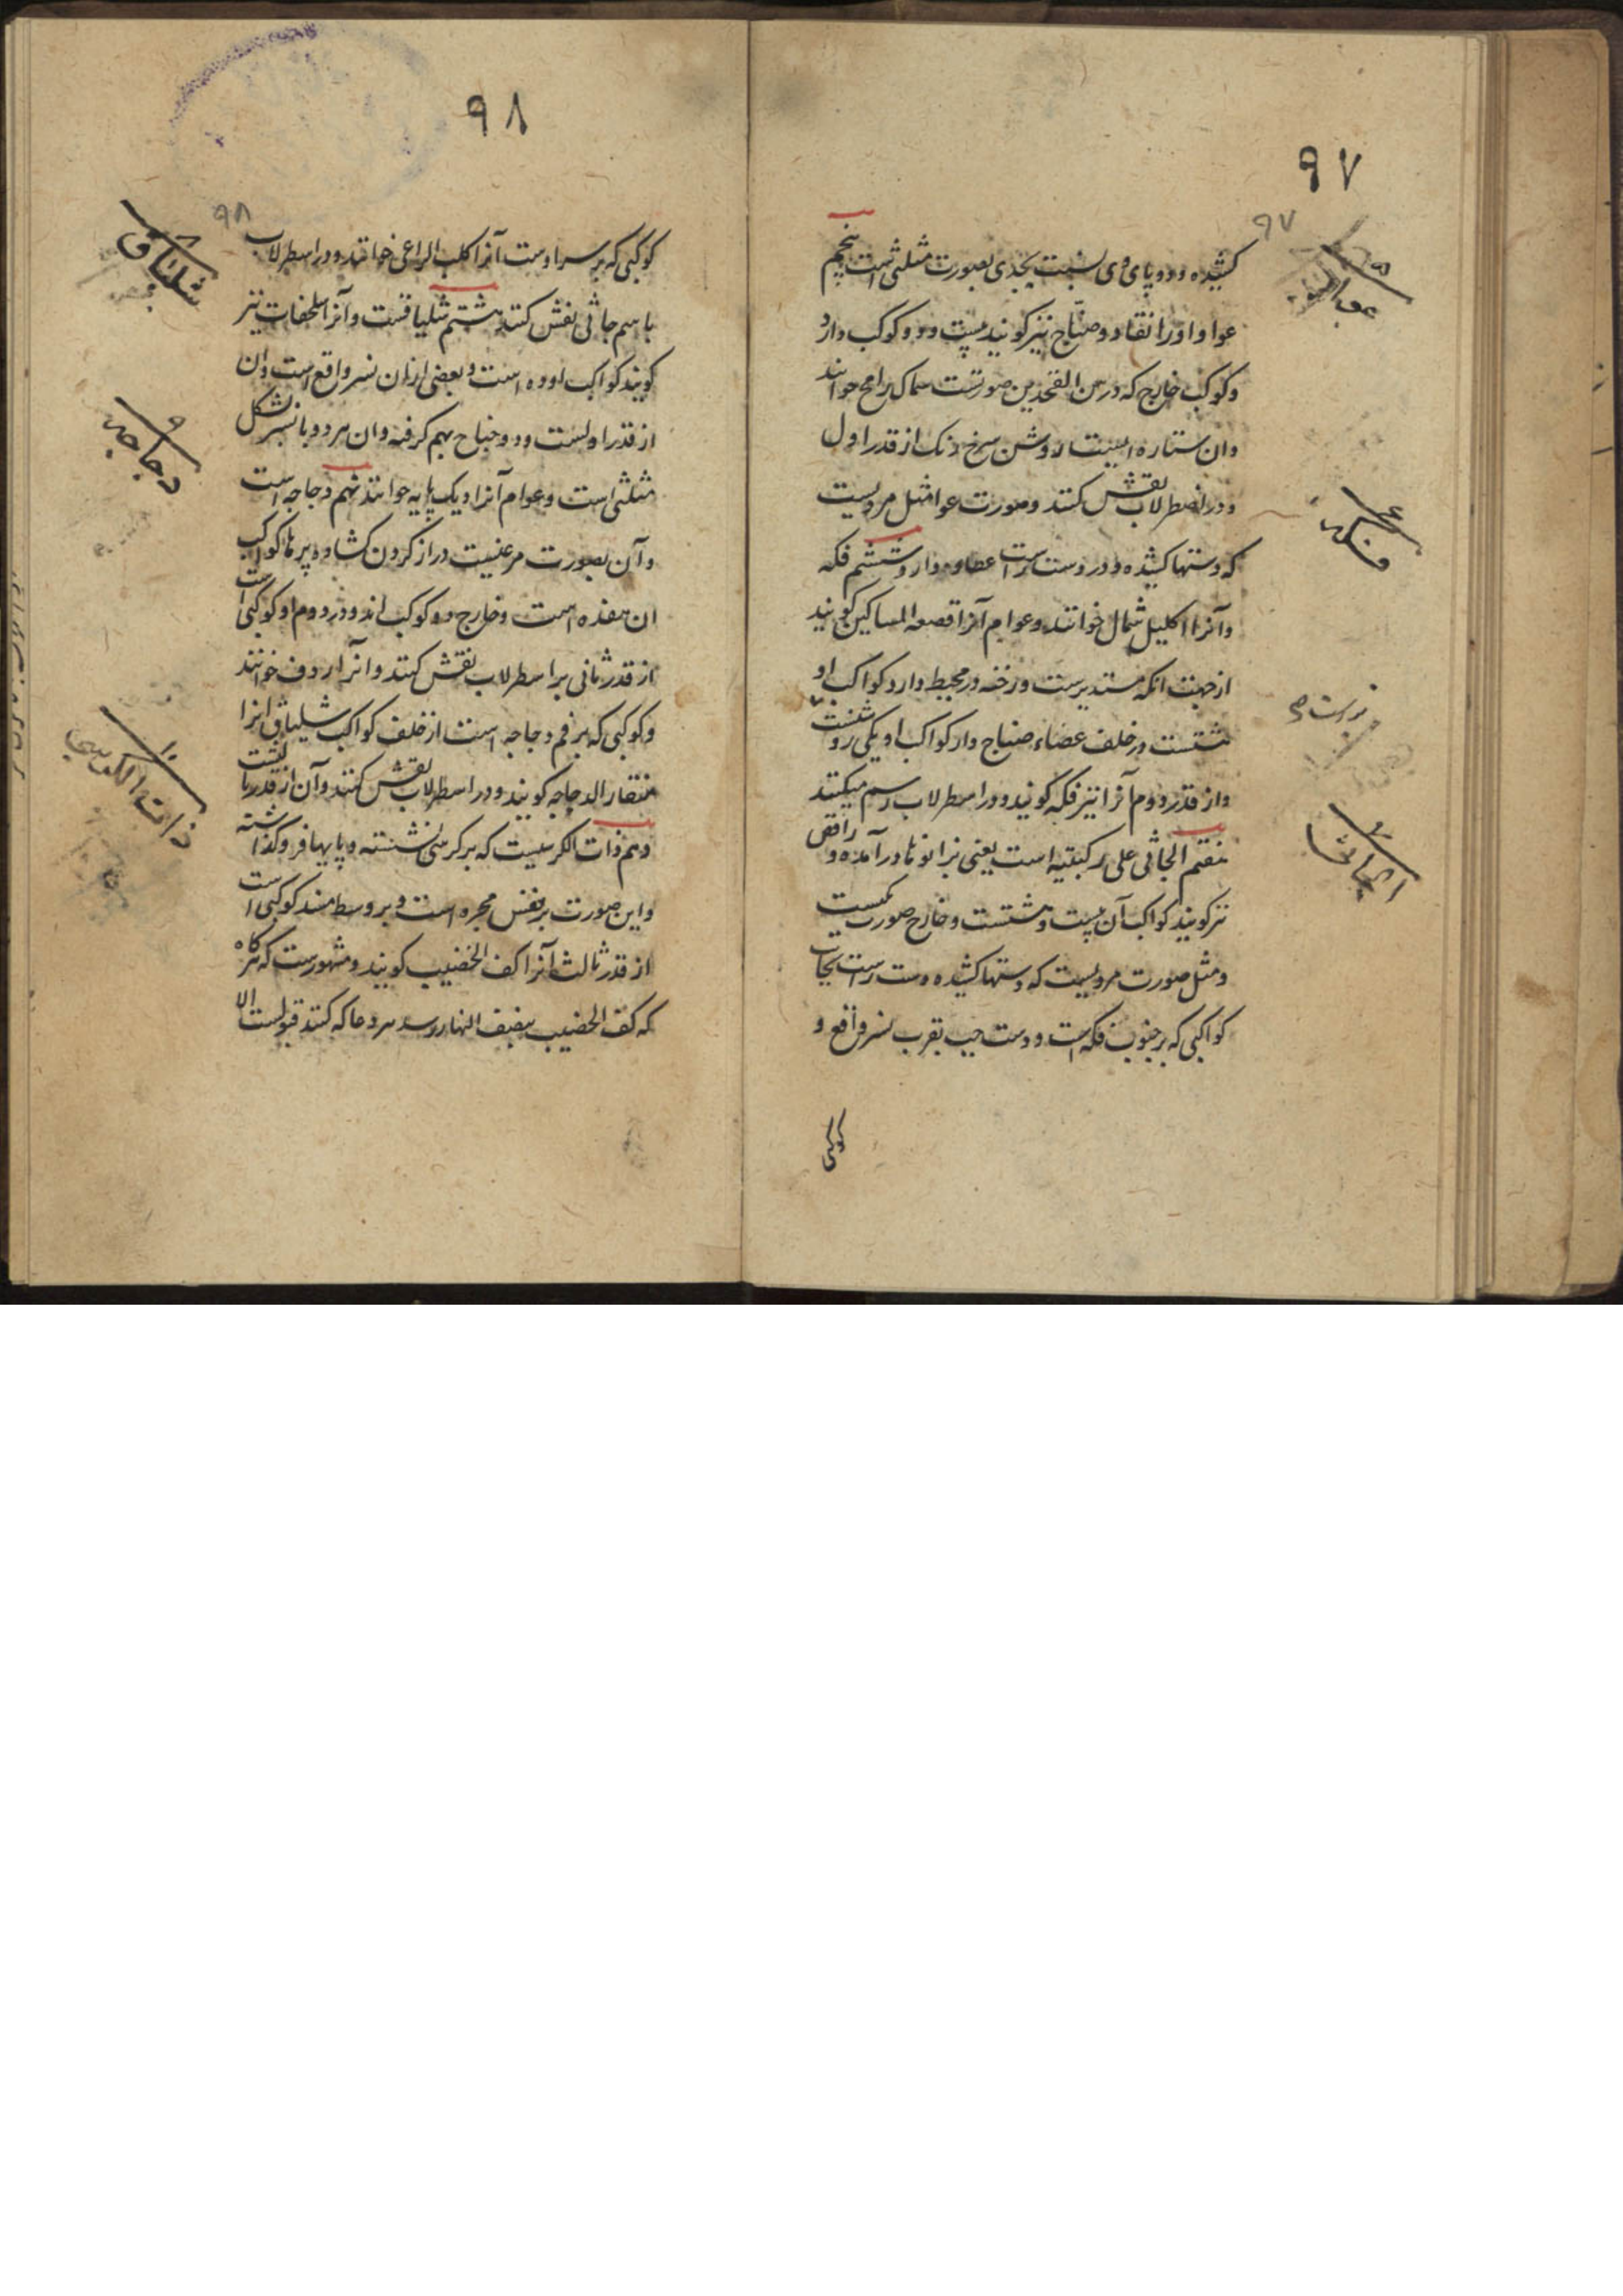 ۹۷
۹۷
کشیده و دو پای وی نسبت بجدی بصورت مثلثی است پنجم
عوا و او را نقاد و صیاح نیز کویند بیست و دو کوکب دارد
و کوکب خارج که در بین الفخذین صورتست سماک رامح خوانند
وان ستاره ایست روشن سرخ رنک از قدر اول
و در اصطرلاب نقش کنند و صورت عوا مثل مردیست
که دستها کشیده و در دست راست عصا دارد ششم فکه
وآنرا اکلیل شمال خوانند و عوام آنرا قصعه المساکین کویند
از جهت انکه مستدیرست و رخنه در محیط دارد کواکب او
هشتست در خلف عصاء صیاح دار کواکب او یکی روشنست
و از قدر دوم آنرا نیز فکه کویند و در اسطرلاب رسم میکنند
هفتم الجاثی علی رکبتیه است یعنی بزانو ها در آمده و راقص
نیز کویند کواکب آن بیست و هشتست و خارج صورت یکیست
و مثل صورت مردیست که دستها کشیده دست راست بجانب
کواکبی که بر جنوب فکه است و دست چپ بقرب نسر واقع و
کوکبی
۵
۶
فکه
۷
الجاثی
۹۸
۹۸
کوکبی که بر سر اوست آنرا کلب الراعی خوانند و در اسطرلاب
باسم جاثی نقش کنند هشتم شلیاقست و آنرا سلحفات نیز
کویند کواکب او ده است و بعضی ازان نسر واقع است وان
از قدر اولست و دو جناح بهم کرفته وان هر دو با نسر بشکل
مثلثی است و عوام آنرا دیک پایه خوانند نهم دجاجه است
و آن بصورت مرغیست دراز کردن کشاده پر ها کواکب
ان هفده است و خارج دو کوکب اند و در دوم او کوکبی است
از قدر ثانی بر اسطرلاب نقش کنند و انرا ردف خوانند
و کوکبی که بر فم دجاجه است از خلف کواکب شلیاق انرا
منقار الدجاجه کویند و در اسطرلاب نقش کنند و آن از قدر
دهم ذات الکرسیست که بر کرسی نشسته و پایها فرو کذاشته
و این صورت بر نفس مجره است و بر وسط مسند کوکبی است
از قدر ثالث آنرا کف الخضیب کویند و مشهورست که هر کاه
که کف الخضیب بنصف النهار رسد هر دعا که کنند قبولست الا
۸
شلیاق
۹
دجاجه
۱۰
ذات الکرسی